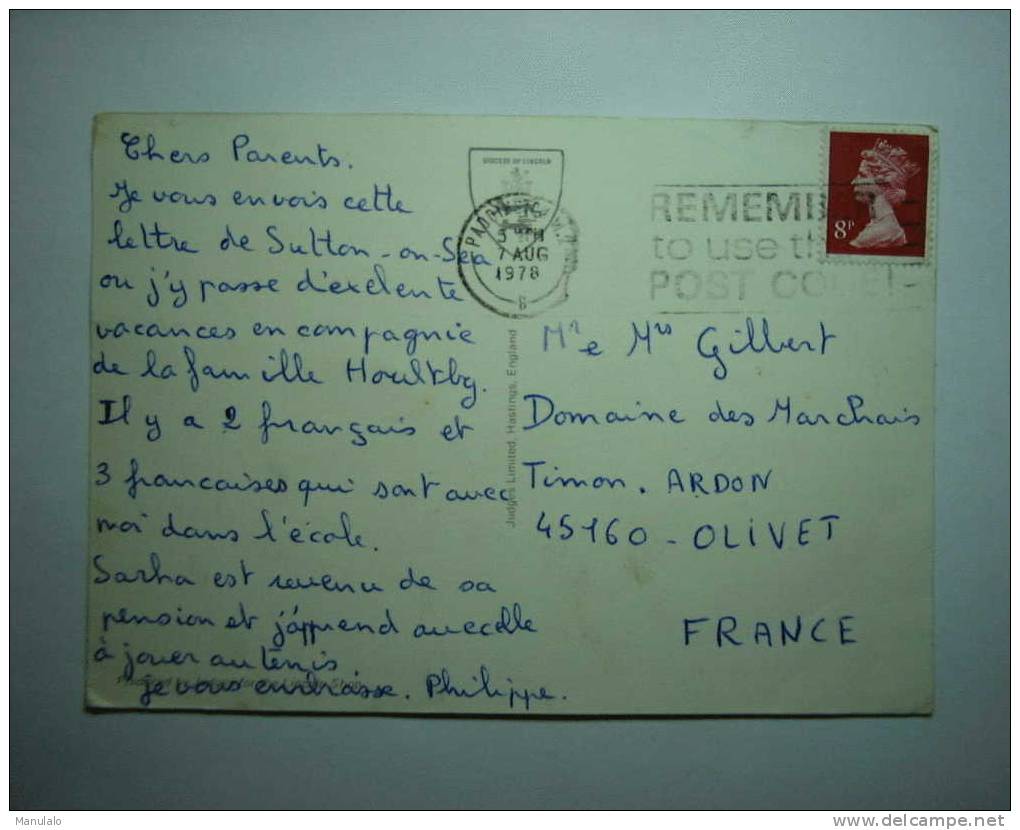 Chers Parents.
Je vous envois cette
lettre de Sutton-on-Sea
ou j'y passe d'exelente
vacances en compagnie
de la famille Houltby.
Il y a 2 français et
3 francaises qui sont avec
moi dans l'école.
Sarha est revenu de sa
pension et j'apprend avec elle
à jouer au tenis.
je vous embrasse. Philippe.
DIOCESE OF LINCOLN
5 PM
7 AUG
1978
8
REMEMB
to use th
POST CODE
8P
Judges Limited, Hastings, England
Mr e Mrs Gilbert
Domaine des Marchais
Timon. ARDON
45160 - OLIVET
FRANCE
Manulalo
www.delcampe.net